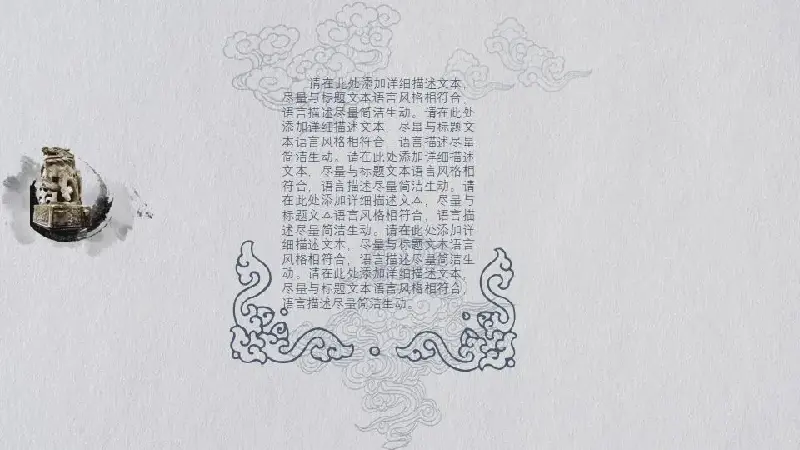 请在此处添加详细描述文本，
尽量与标题文本语言风格相符合，
语言描述尽量简洁生动。请在此处
添加详细描述文本，尽量与标题文
本语言风格相符合，语言描述尽量
简洁生动。请在此处添加详细描述
文本，尽量与标题文本语言风格相
符合，语言描述尽量简洁生动。请
在此处添加详细描述文本，尽量与
标题文本语言风格相符合，语言描
述尽量简洁生动。请在此处添加详
细描述文本，尽量与标题文本语言
风格相符合，语言描述尽量简洁生
动。请在此处添加详细描述文本，
尽量与标题文本语言风格相符合，
语言描述尽量简洁生动。